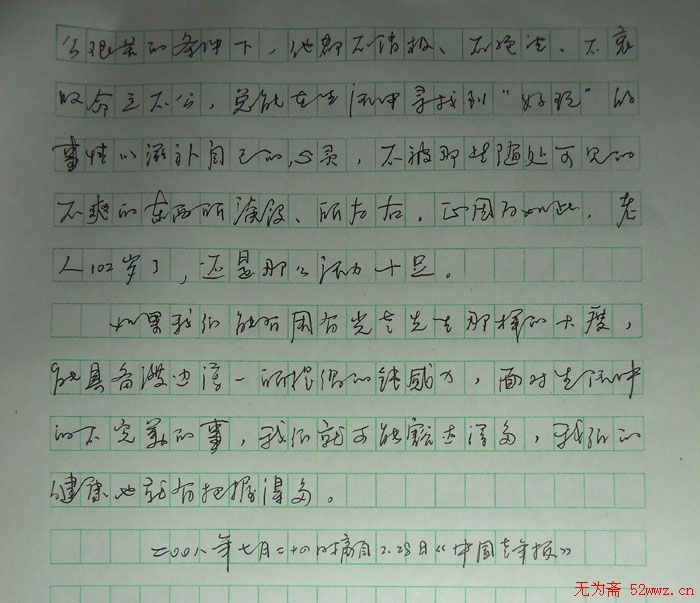 么艰苦的条件下，他都不消极、不绝望、不哀
叹命运不公，总能在生活中寻找到“好玩”的
事情以滋补自己的心灵，不被那些随处可见的
不爽的东西所淹没、所左右。正因为如此，老
人102岁了，还是那么活力十足。
如果我们能有周有光老先生那样的大度，
能具备渡边淳一所提倡的钝感力，面对生活中
的不完美的事，我们就可能豁达得多，我们的
健康也就有把握得多。
二00八年七月二十四日摘自2.28日《中国老年报》
无为斋 52wwz.cn